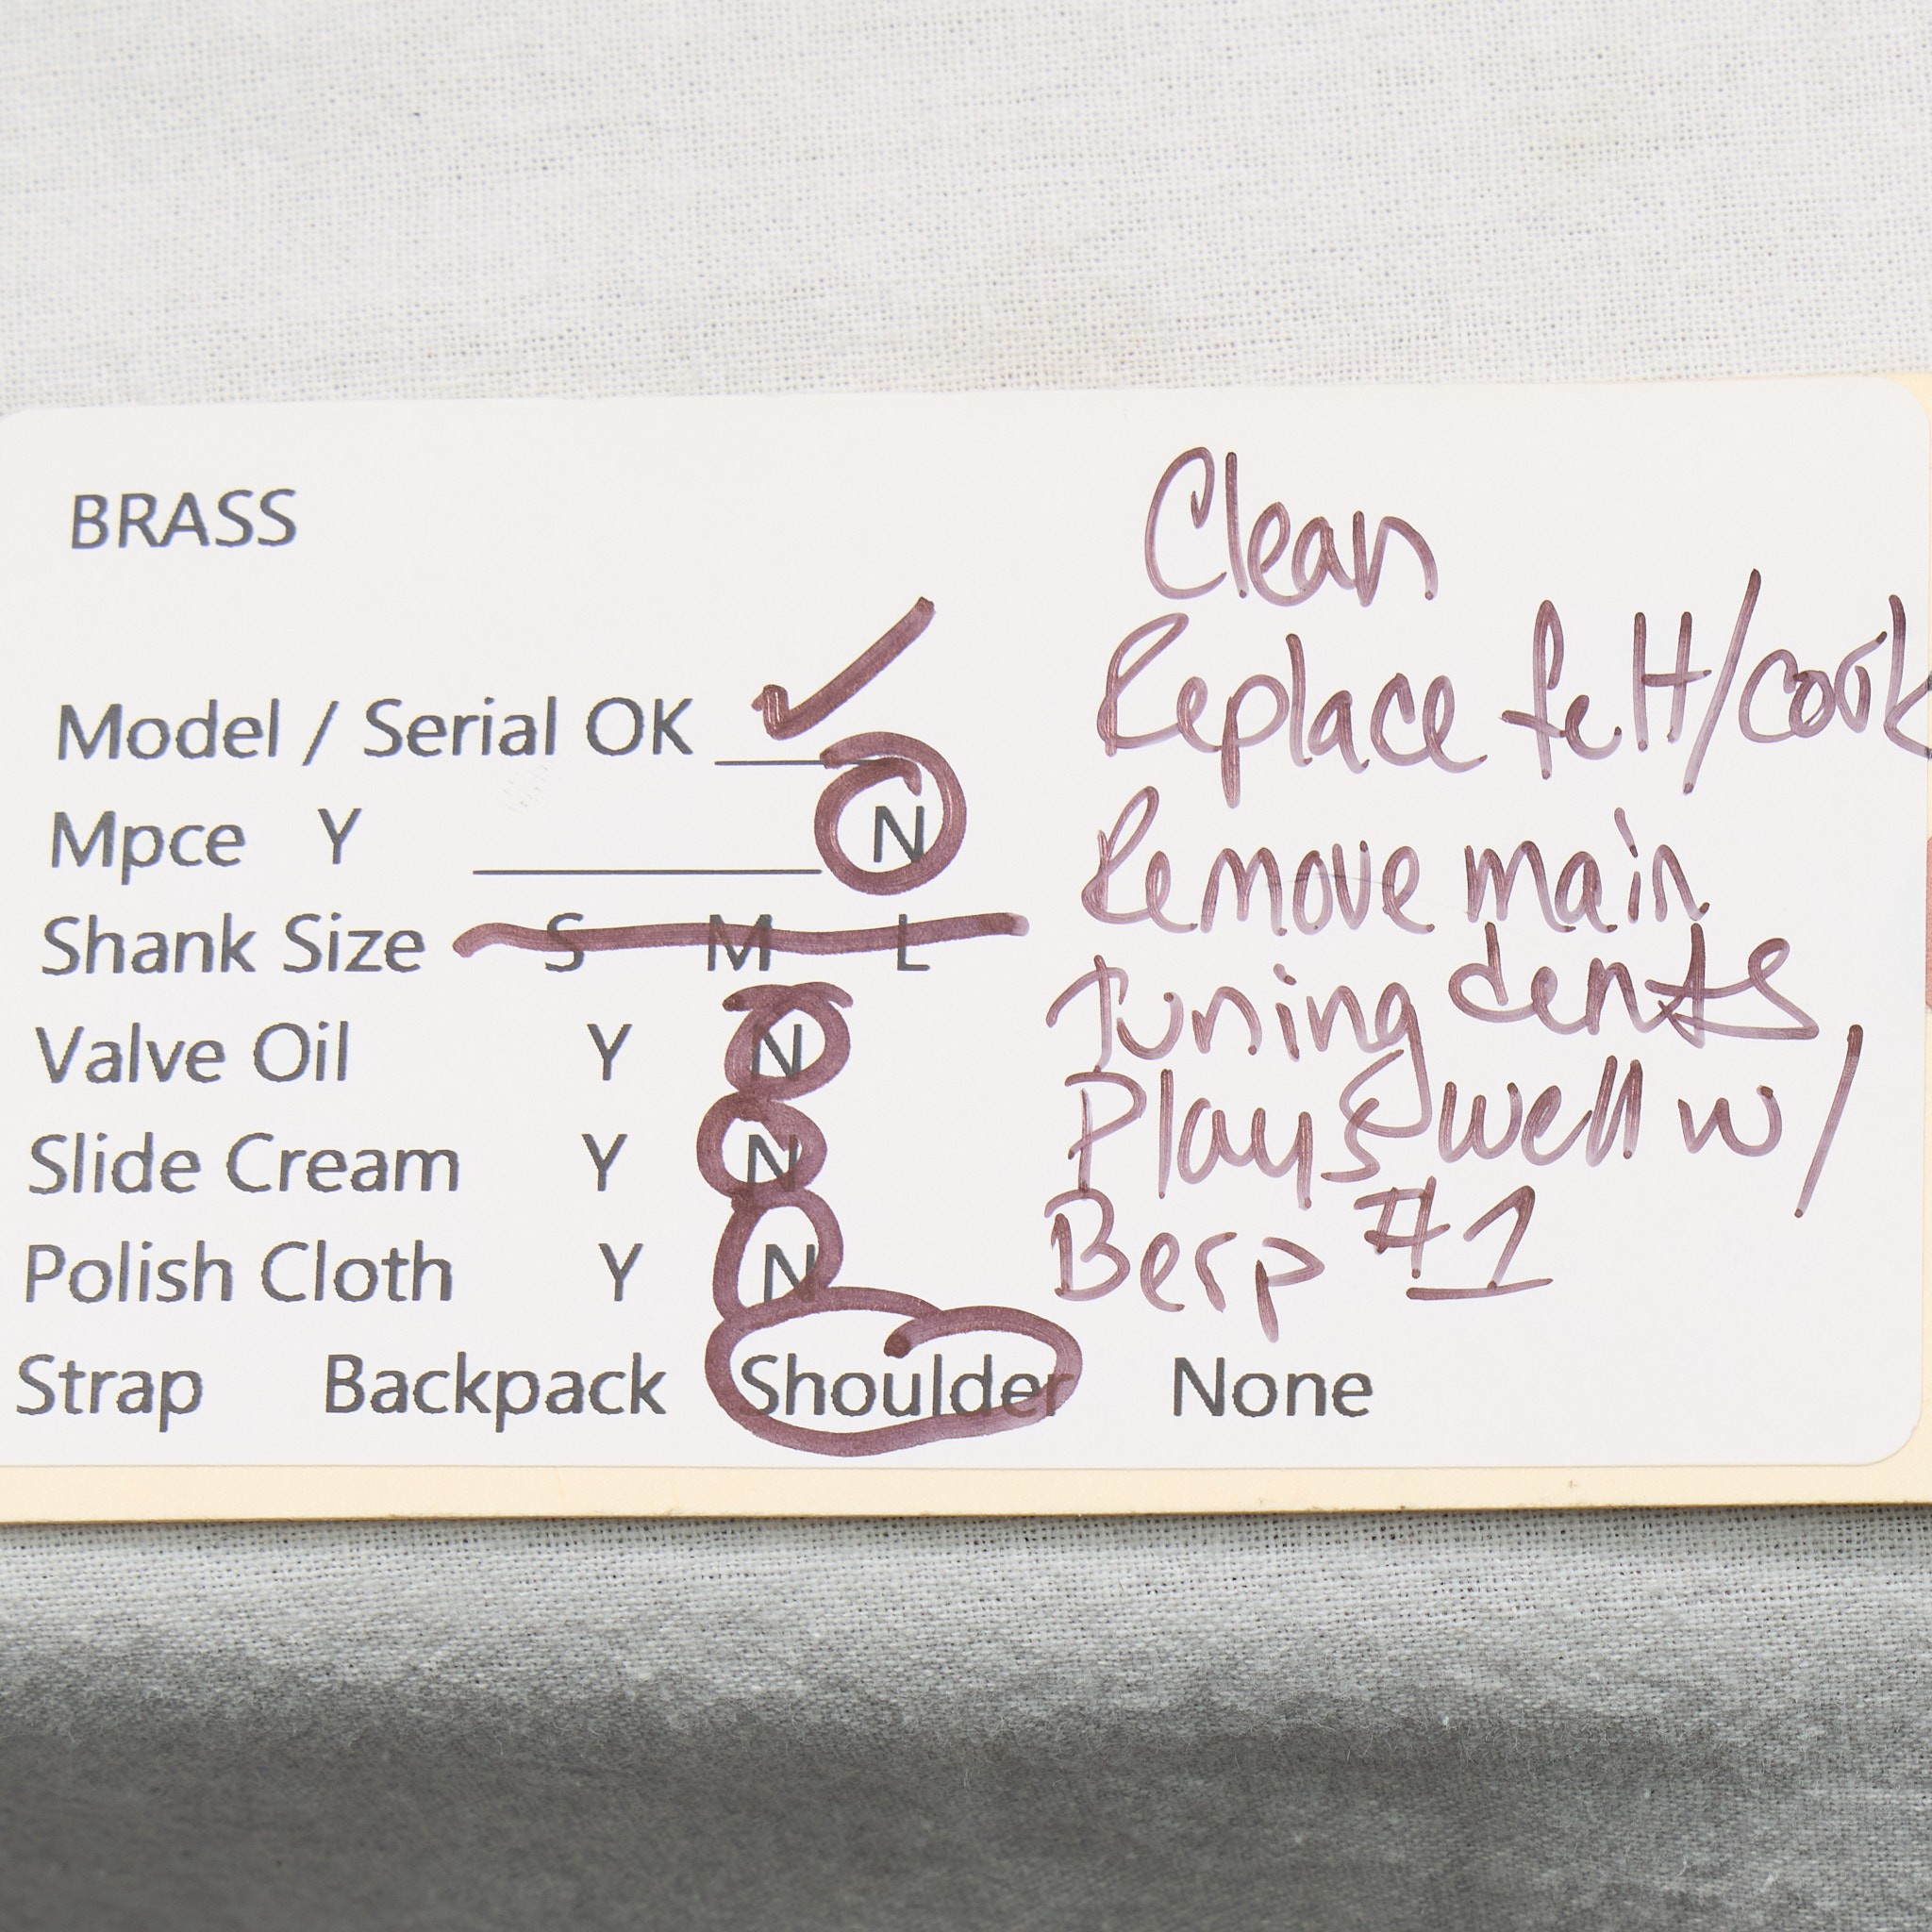 BRASS
Model / Serial OK ✓
Mpce Y N
Shank Size S M L
Valve Oil Y N
Slide Cream Y N
Polish Cloth Y N
Strap Backpack Shoulder None
Clean
Replace felt/cork
Remove main
Tuning dents,
Plays well w/
Berp #1